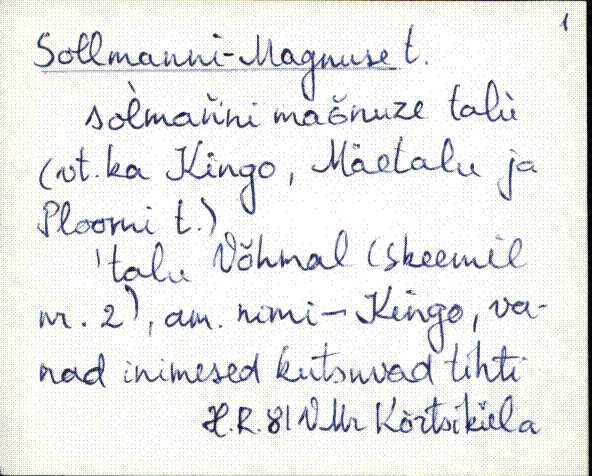 1
Sollmanni-Magnuse t.
sòlmań̀ni maǧnuze talù
(vt. ka Kingo, Mäetalu ja
Ploomi t.)
'talu Võhmal (skeemil
nr. 2), am. nimi - Kingo, va-
nad inimesed kutsuvad tihti
H.R. 81 VMr Kõrtsiküla